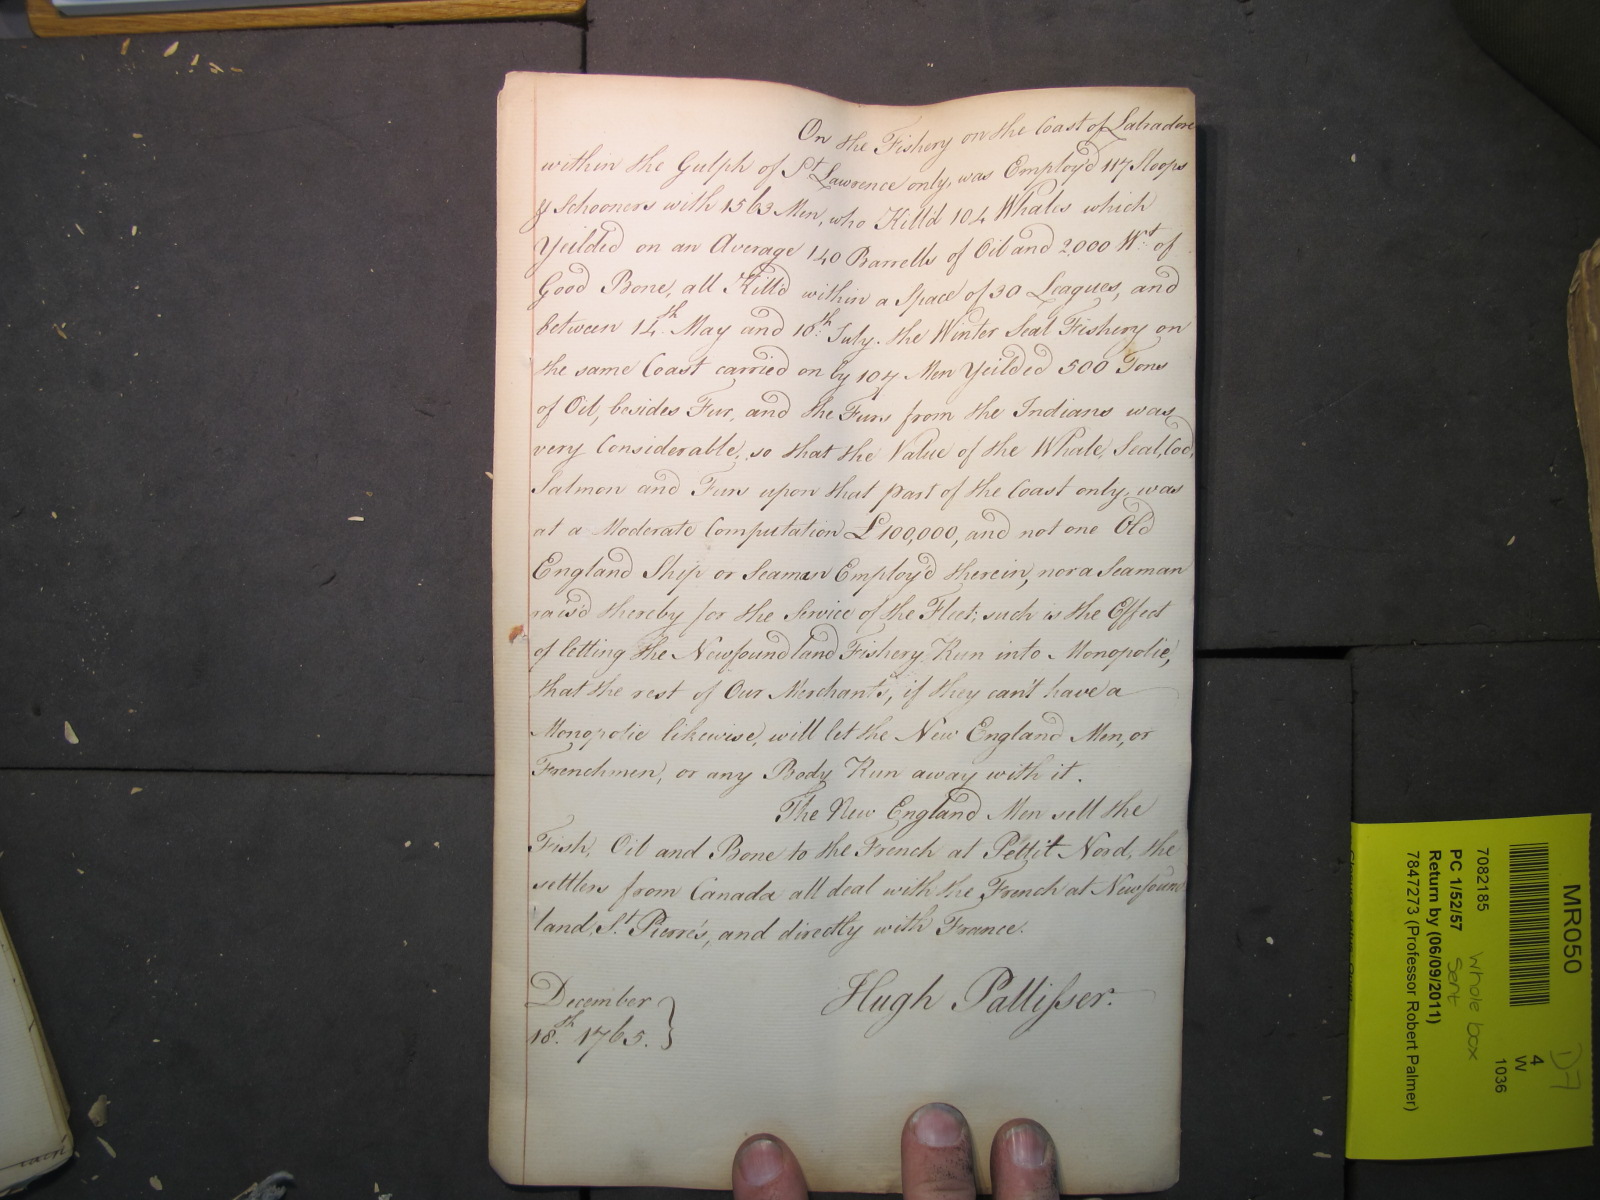 On the Fishery on the Coast of Labradore
within the Gulph of St. Lawrence only, was Employ'd 117 Sloops
& Schooners with 1563 Men, who Kill'd 104 Whales which
Yeilded on an Average 140 Barrells of Oil and 2,000 Wt. of
Good Bone, all Kill'd within a Space of 30 Leagues, and
between 14th May and 10th July. the Winter Seal Fishery on
the same Coast carried on by 107 Men Yeilded 500 Tons
of Oil, besides Fur, and the Furs from the Indians was
very Considerable, so that the Value of the Whale, Seal, Cod,
Salmon and Furs upon that part of the Coast only, was
at a Moderate Computation £100,000, and not one Old
England Ship or Seaman Employ'd therein, nor a Seaman
rais'd thereby for the Service of the Fleet; such is the Effect
of letting the Newfoundland Fishery Run into Monopolie,
that the rest of Our Merchants, if they can't have a
Monopolie likewise, will let the New England Men, or
Frenchmen, or any Body Run away with it.
The New England Men sell the
Fish, Oil and Bone to the French at Pettit Nord, the
settlers from Canada all deal with the French at Newfound
land, St. Pierre's, and directly with France.
Hugh Pallisser.
December
18th. 1765.
MR050
4
W
1036
D7
7082185
PC 1/52/57
Whole box
Sent
Return by (06/09/2011)
7847273 (Professor Robert Palmer)